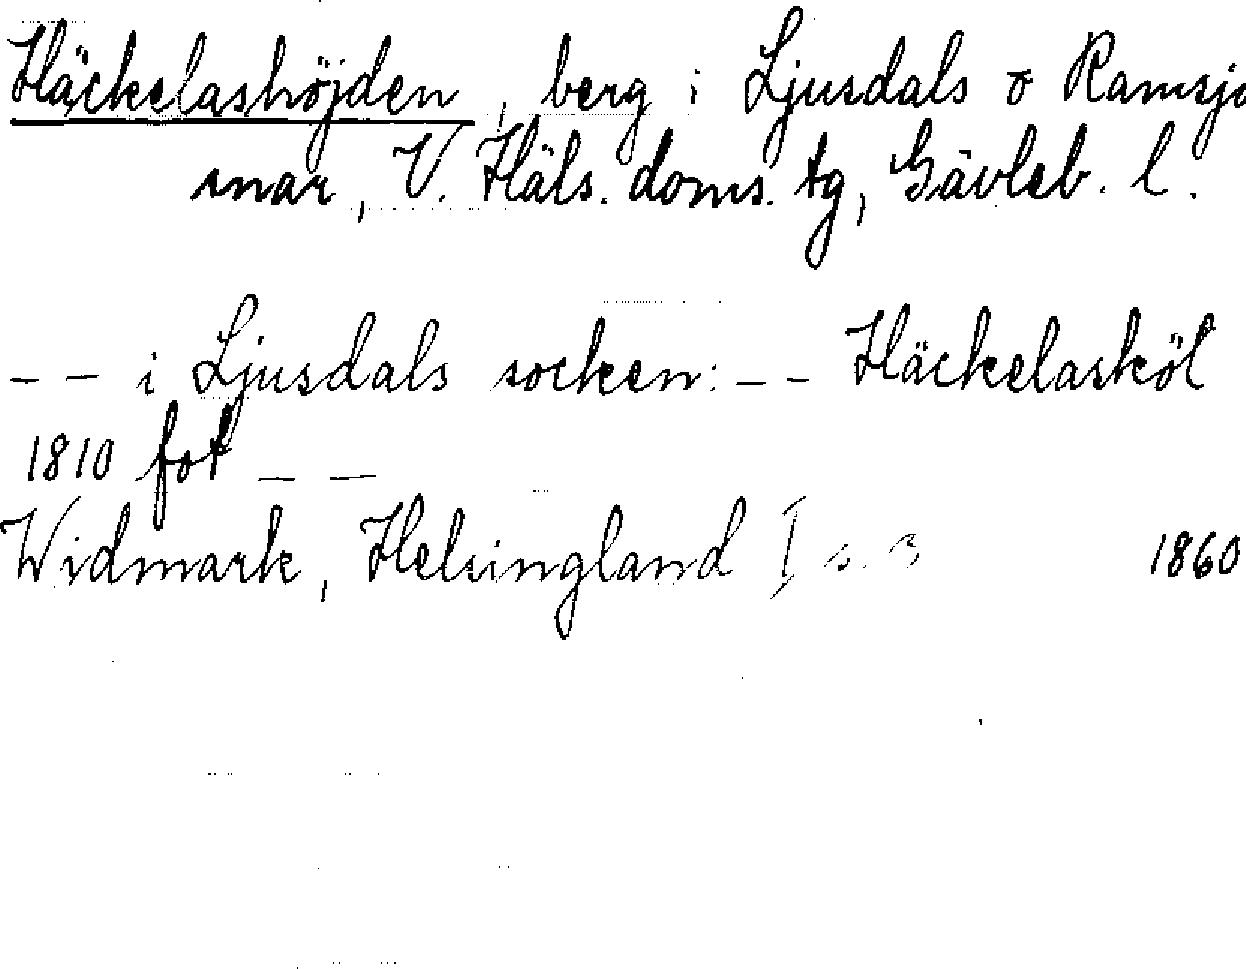 Häckelashöjden, berg i Ljusdals o Ramsjö
snar, V. Häls. doms. tg, Gävleb. l.
– – i Ljusdals socken: – – Häckelasköl
1810 fot – –
Widmark, Helsingland I s. 3 1860